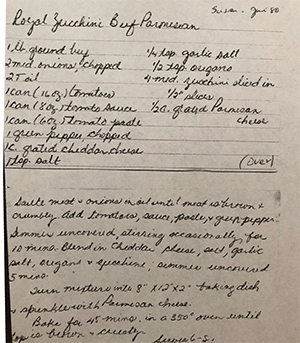 Susan - Jan 80
Royal Zucchini Beef Parmesan
1 lb. ground beef
2 med. onions, chopped
2 T oil
1 can (16 oz.) tomatoes
1 can (8 oz.) tomato sauce
1 can (6 oz.) tomato paste
1 green pepper chopped
1 c. grated cheddar cheese
1 tsp. salt
1/4 tsp. garlic salt
1/2 tsp. oregano
4 med. zucchini sliced in
1/2" slices
1/2 c. grated Parmesan
cheese
(over)
Saute meat & onions in oil until meat is brown &
crumbly. Add tomatoes, sauce, paste, & green pepper.
Simmer uncovered, stirring occasionally, for
10 mins. Blend in cheddar cheese, salt, garlic
salt, oregano & zucchini; simmer uncovered
5 mins.
Turn mixture into 8" x 12" x 2" baking dish
& sprinkle with Parmesan cheese.
Bake for 45 mins. in a 350° oven until
top is brown & crusty.
Serves 6-8.